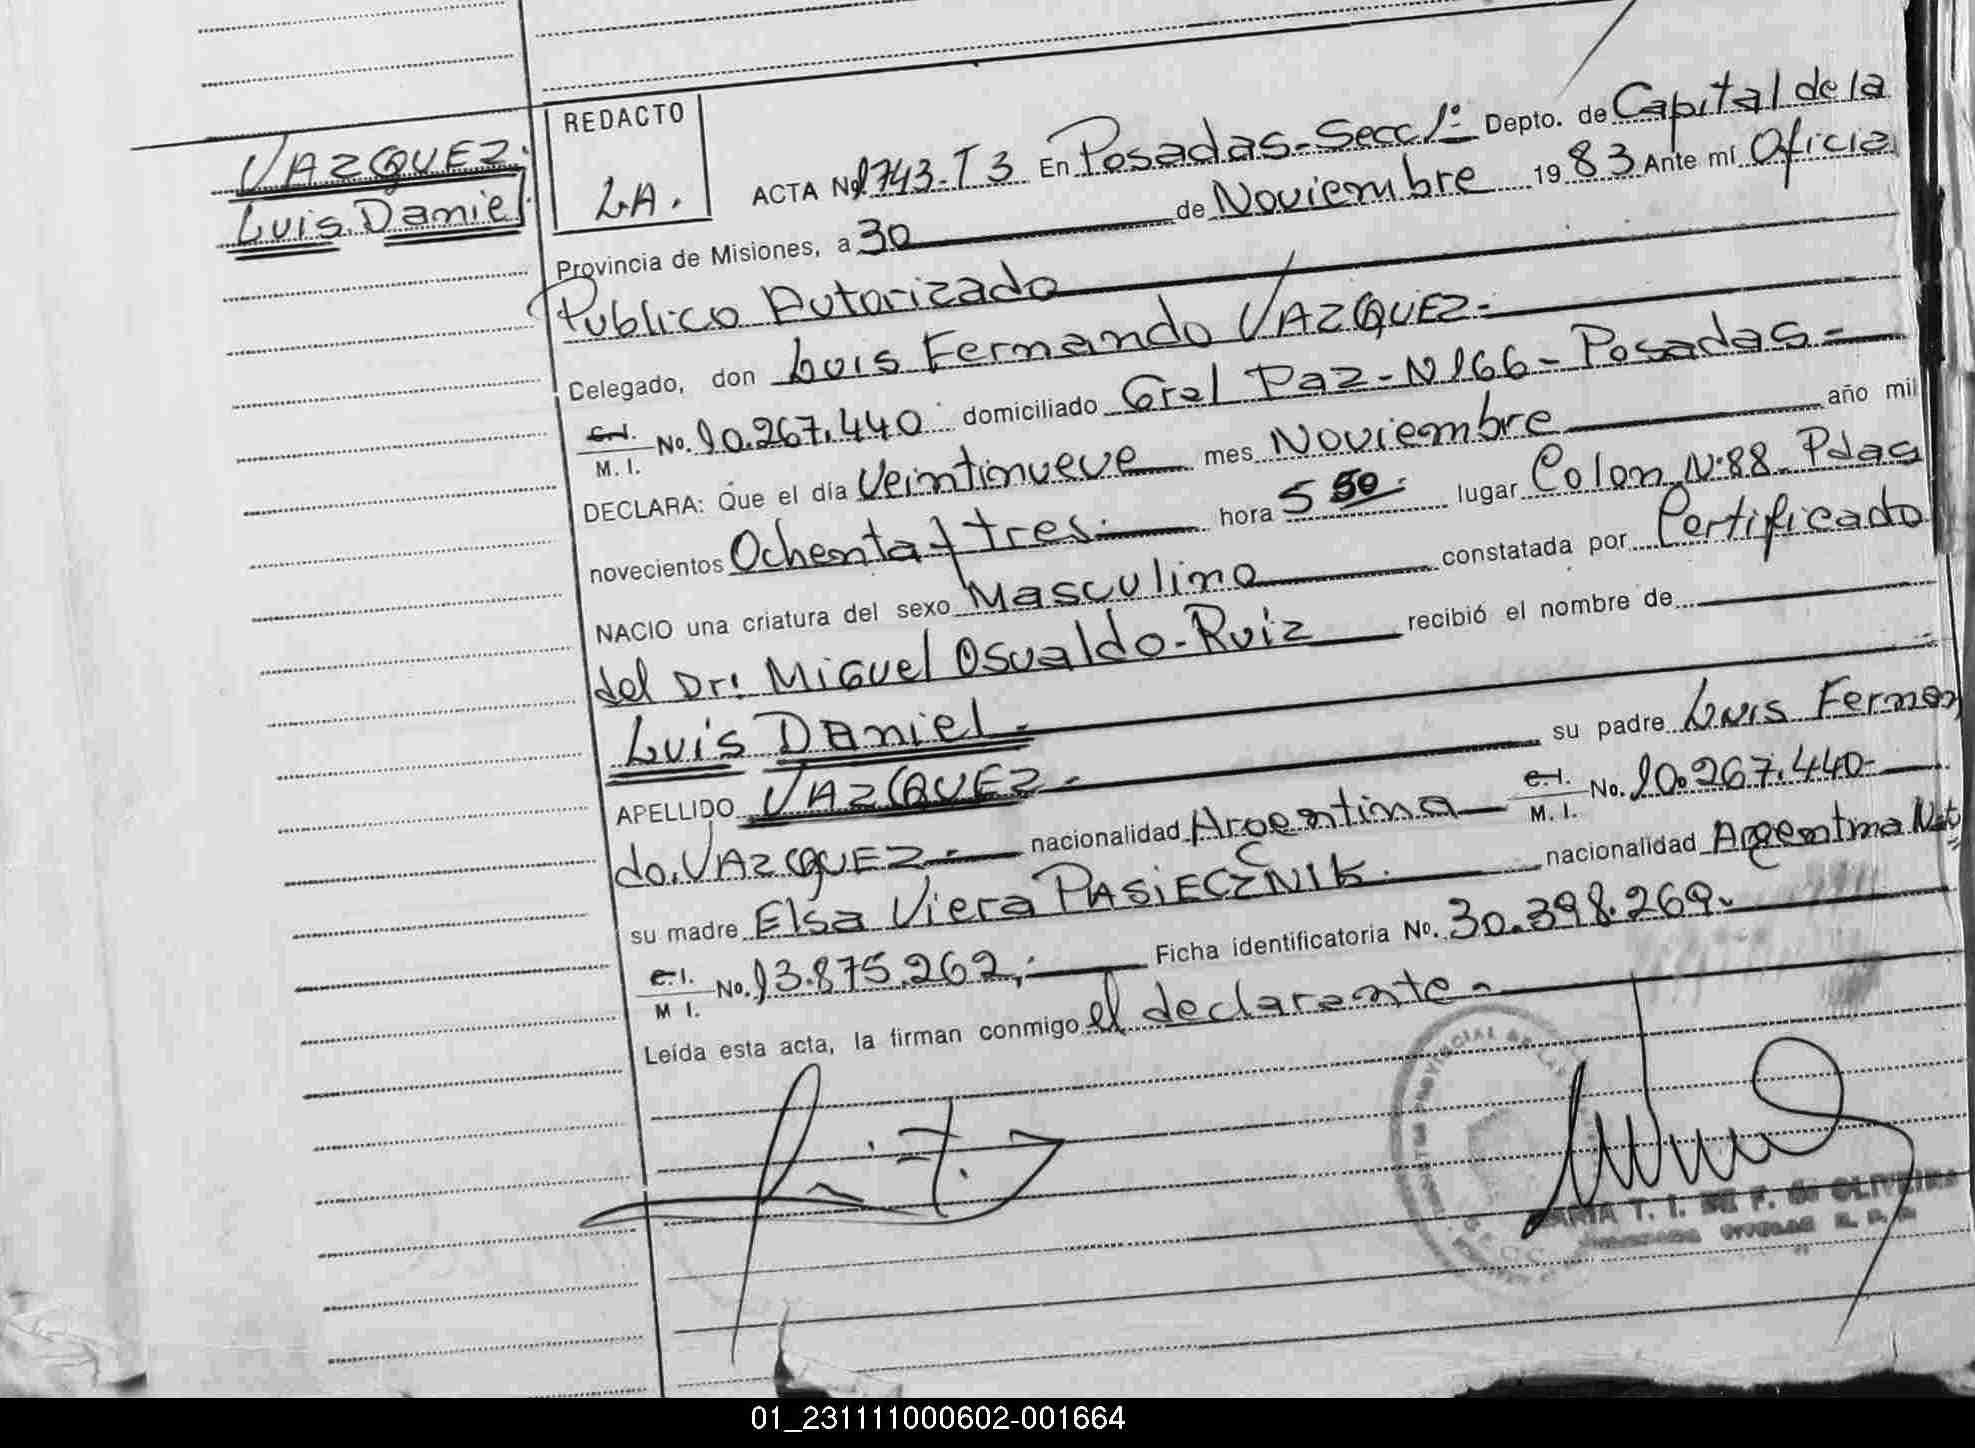 VAZQUEZ.
Luis Daniel
REDACTO
LA.
ACTA No 1743-T3 En Posadas-Secc 1º Depto. de Capital de la
Provincia de Misiones, a 30 de Noviembre 1983 Ante mí Oficial
Publico Autorizado
Celegado, don Luis Fernando VAZQUEZ-
C.I. M. I. No. 10.267.440 domiciliado Gral Paz-N166-Posadas-
DECLARA: Que el día Veintinueve mes Noviembre año mil
novecientos Ochenta y tres.- hora 5 50 lugar Colon N·88 Pdas
NACIO una criatura del sexo Masculino constatada por Certificado
del Dr: Miguel Osvaldo-Ruiz recibió el nombre de
Luis Daniel.-
APELLIDO VAZQUEZ.- su padre Luis Fernan
do.VAZQUEZ.- nacionalidad Argentina C.I. M. I. No. 10.267.440-
su madre Elsa Viera PASIECZNIK. nacionalidad Argentina Nat
C.I. M I. No. 13.875.262,- Ficha identificatoria No. 30.398.269.
Leída esta acta, la firman conmigo el declarante-
MARIA T. I. DE F. de OLIVEIRA
01_231111000602-001664